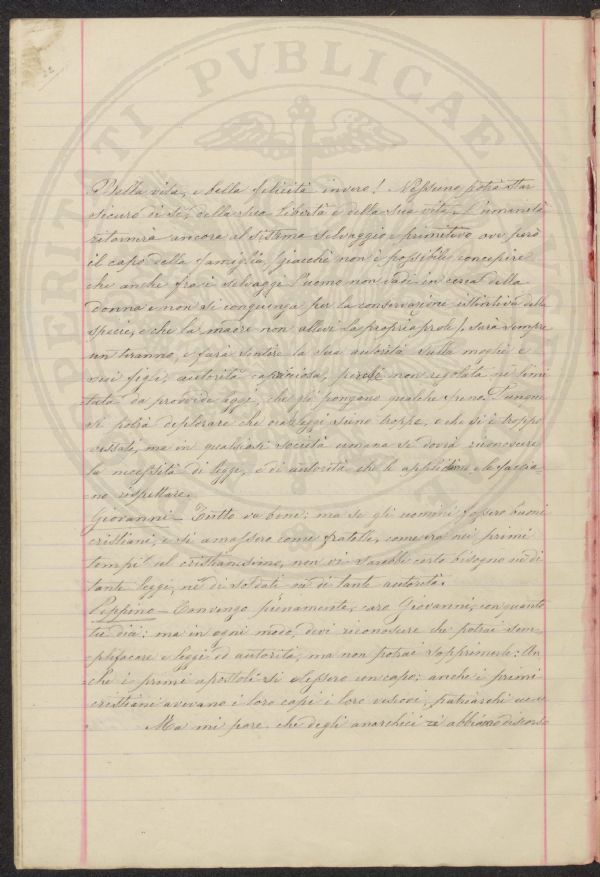 22
PROSPERITATI PVBLICAE
Bella vita, e bella felicità invero! Nessuno potrà star
sicuro di sé, della sua libertà e della sua vita. L'umanità
ritornerà ancora al sistema selvaggio, e primitivo ove però
il capo della famiglia (giacchè non è possibile concepire
che anche fra i selvaggi l'uomo non vada in cerca della
donna e non si congiunga per la conservazione istintiva della
specie, e che la madre non allevi la propria prole), sarà sempre
un tiranno, e farà sentire la sua autorità sulla moglie e
sui figli; autorità capricciosa, perchè non regolata nè limi
tata da provvide leggi, che gli pongano qualche freno.
si potrà deplorare che le leggi sieno troppe, e che si è troppo
vessati, ma in qualsiasi società umana si dovrà riconoscere
la necessità di leggi, e di autorità che le applichino e le faccia-
no rispettare.
Giovanni – Tutto va bene; ma se gli uomini fossero buoni
cristiani, e si amassero come fratelli, come era nei primi
tempi del cristianesimo, non vi sarebbe certo bisogno nè di
tante leggi, nè di soldati nè di tante autorità.
Peppino – Convengo pienamente, caro Giovanni, con quanto
tu dici: ma in ogni modo, devi riconoscere che potrai sem-
plificare e leggi ed autorità, ma non potrai sopprimerle: An
che i primi apostoli si elessero un capo; anche i primi
cristiani avevano i loro capi i loro vescovi, patriarchi ecc.
Ma mi pare, che degli anarchici ci abbiamo discorso